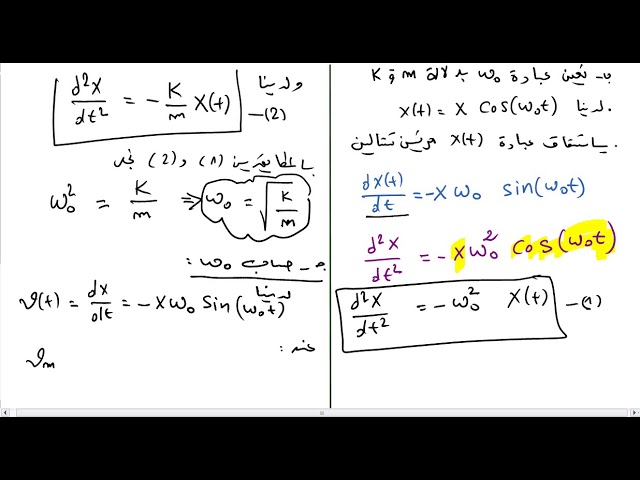 ب- تعين عبارة ω₀ بدلالة m و K
لدينا x(t) = X cos(ω₀t)
باشتقاق عبارة x(t) مرتين متتاليين.
dx(t)/dt = -Xω₀ sin(ω₀t)
d²x/dt² = -Xω₀² cos(ω₀t)
d²x/dt² = -ω₀² X(t) —(1)
ولدينا d²x/dt² = -K/m X(t) —(2)
بالمطابقة بين (1) و(2) نجد
ω₀² = K/m ⇒ ω₀ = √(K/m)
جـ- حساب ω₀ :
لدينا
v(t) = dx/dt = -Xω₀ Sin(ω₀t)
منه :
vm